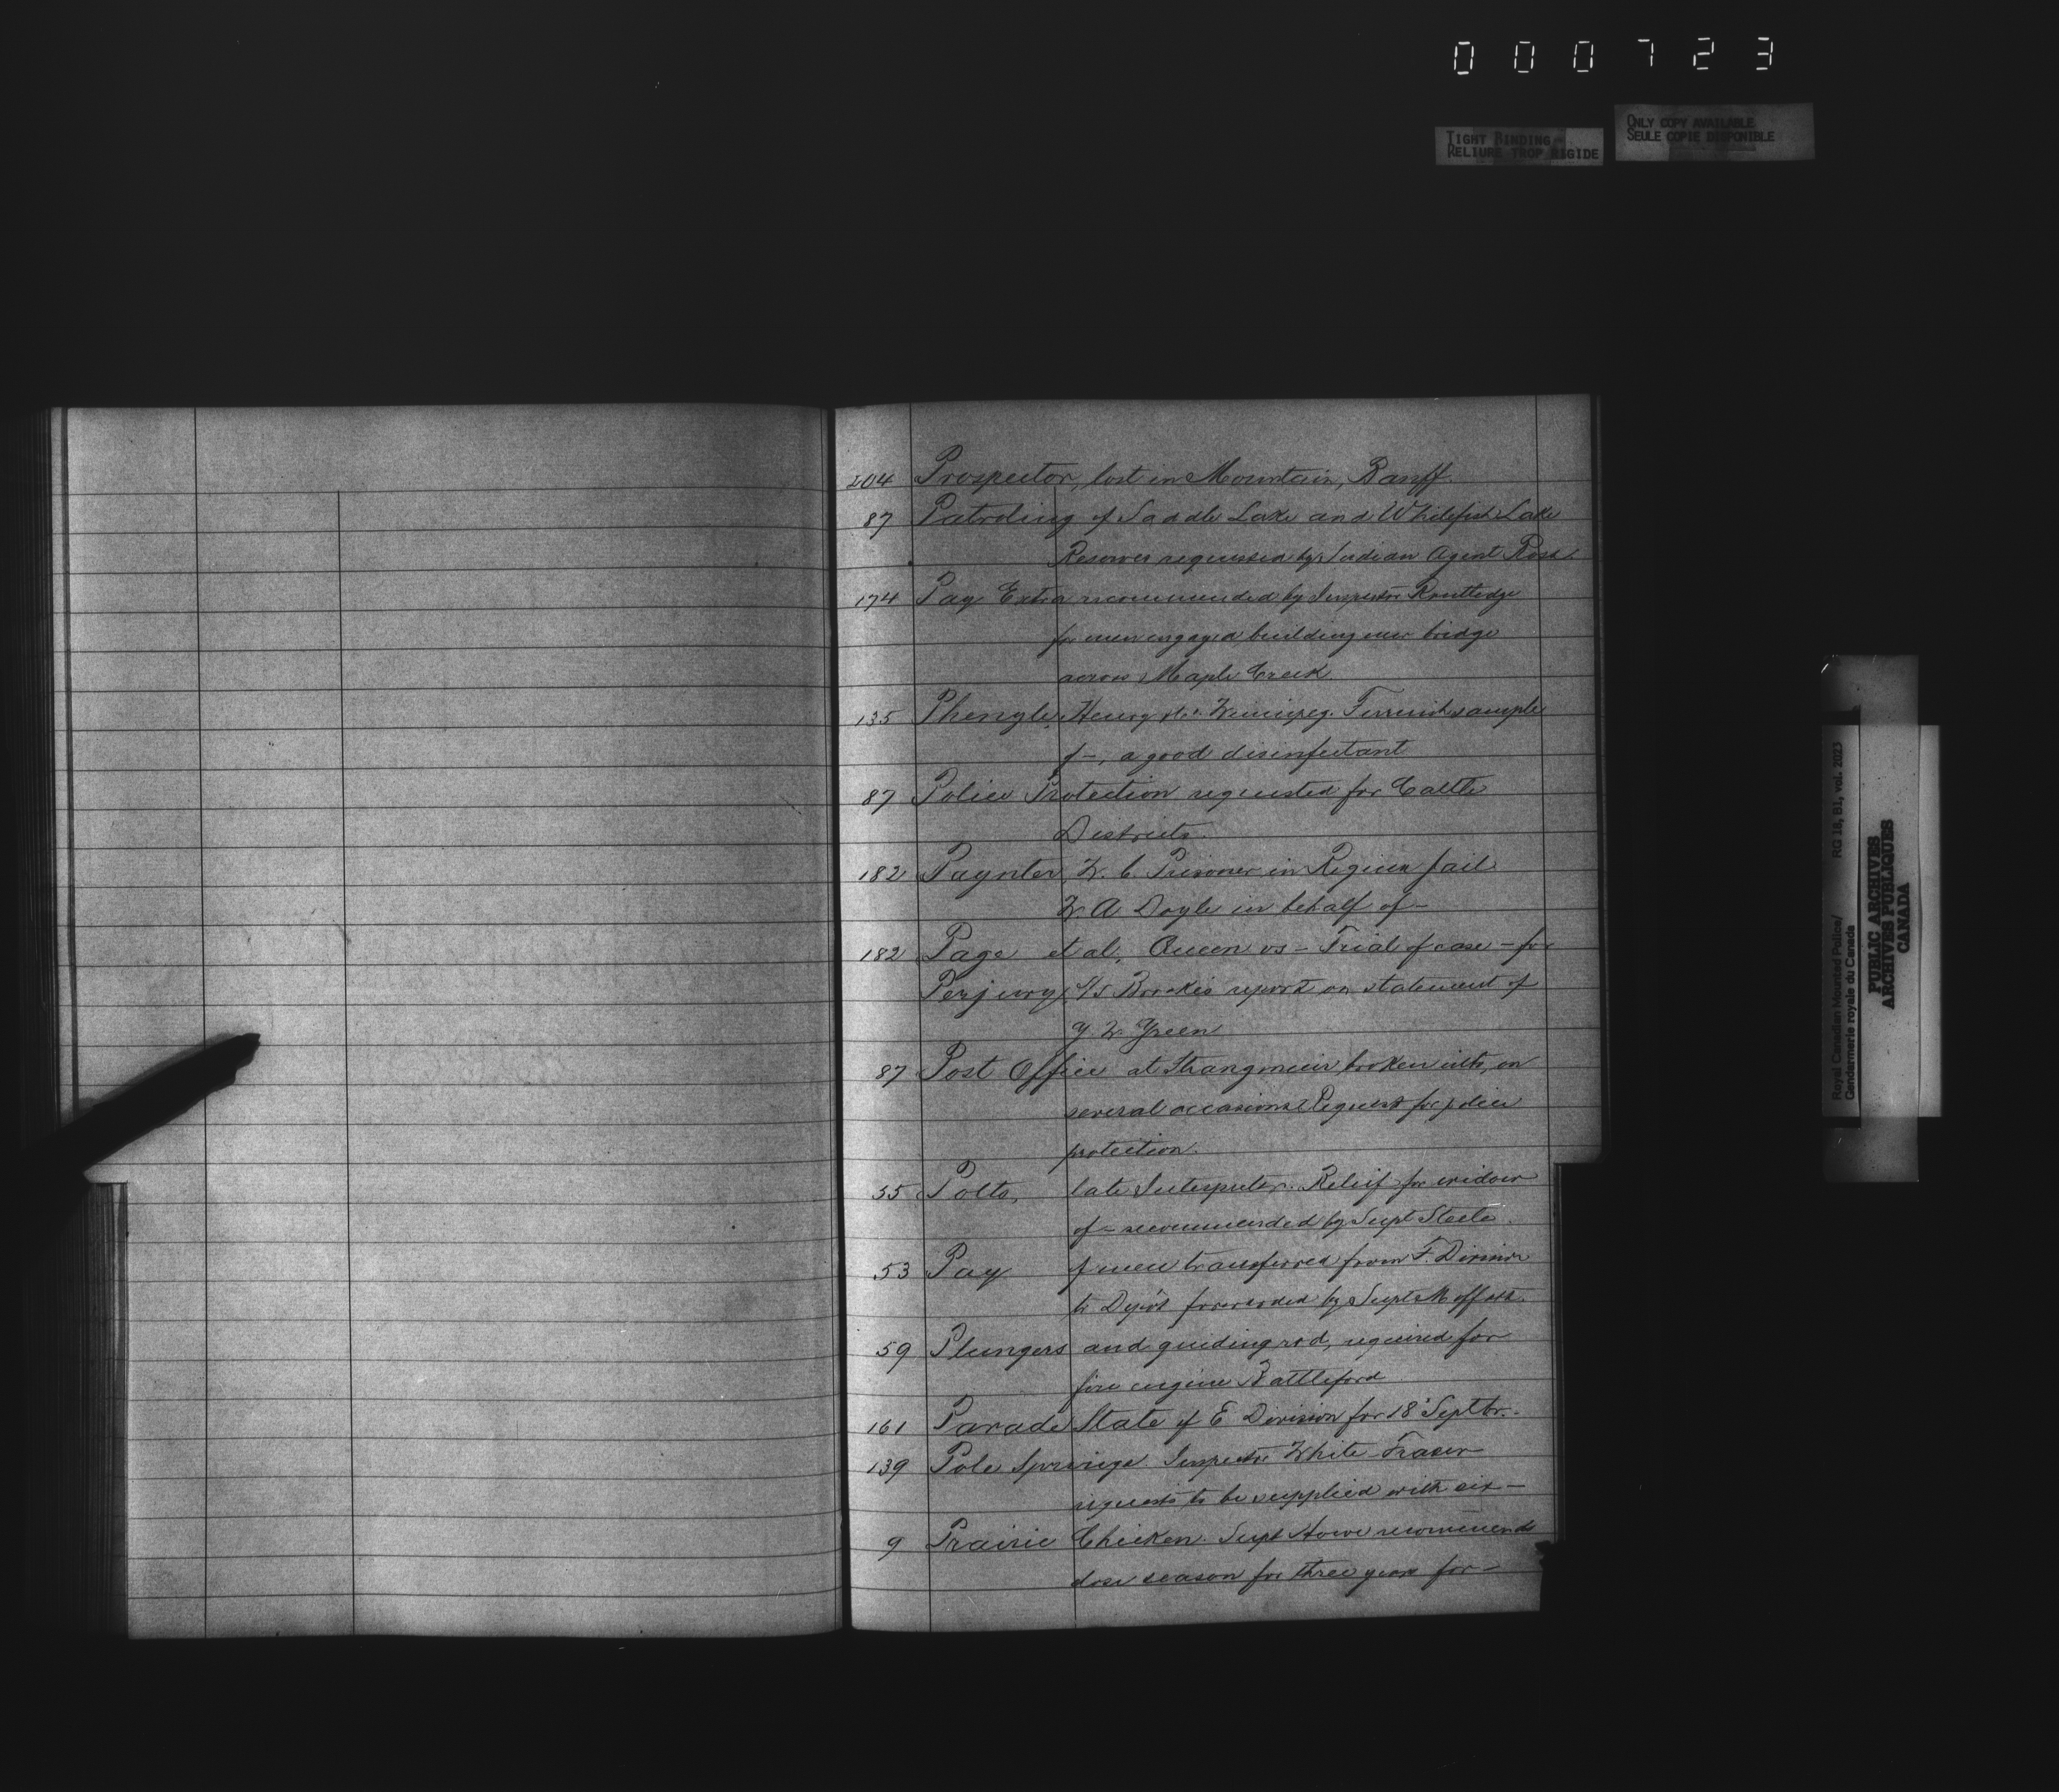 000723
TIGHT BINDING
RELIURE TROP RIGIDE
ONLY COPY AVAILABLE
SEULE COPIE DISPONIBLE
204 Prospector, lost in Mountain, Banff.
87 Patroling of Saddle Lake and Whitefish Lake
Reserves requested by Indian Agent Ross.
174 Pay Extra recommended by Inspector Routledge
for men engaged building new bridge
across Maple Creek
135 Phenyle, Henry Winnipeg. Furnish sample
of —, a good disinfectant
87 Police Protection requested for Cattle
Districts.
182 Paynter W. C. Prisoner in Regina Jail
W. A Doyle in behalf of —
182 Page et al, Queen vs — Trial of case — for
Perjury report on statement of
W. Green
87 Post Office at Strangmuir broken into, on
several occasions Request for police
protection.
55 Potts, late Interpreter. Relief for widow
of — recommended by Supt Steele.
53 Pay of men transferred from F. Division
to Depôt forwarded by Supt Moffatt.
59 Plungers and guiding rod, required for
fire engine Battleford
161 Parade State of E Division for 18 Septbr.
139 Pole Springs. Inspector White Fraser
requests to be supplied with six —
9 Prairie Chicken. Supt Howe recommends
close season for three years for —
Royal Canadian Mounted Police/
Gendarmerie royale du Canada
RG 18, B1, vol. 2023
PUBLIC ARCHIVES
ARCHIVES PUBLIQUES
CANADA